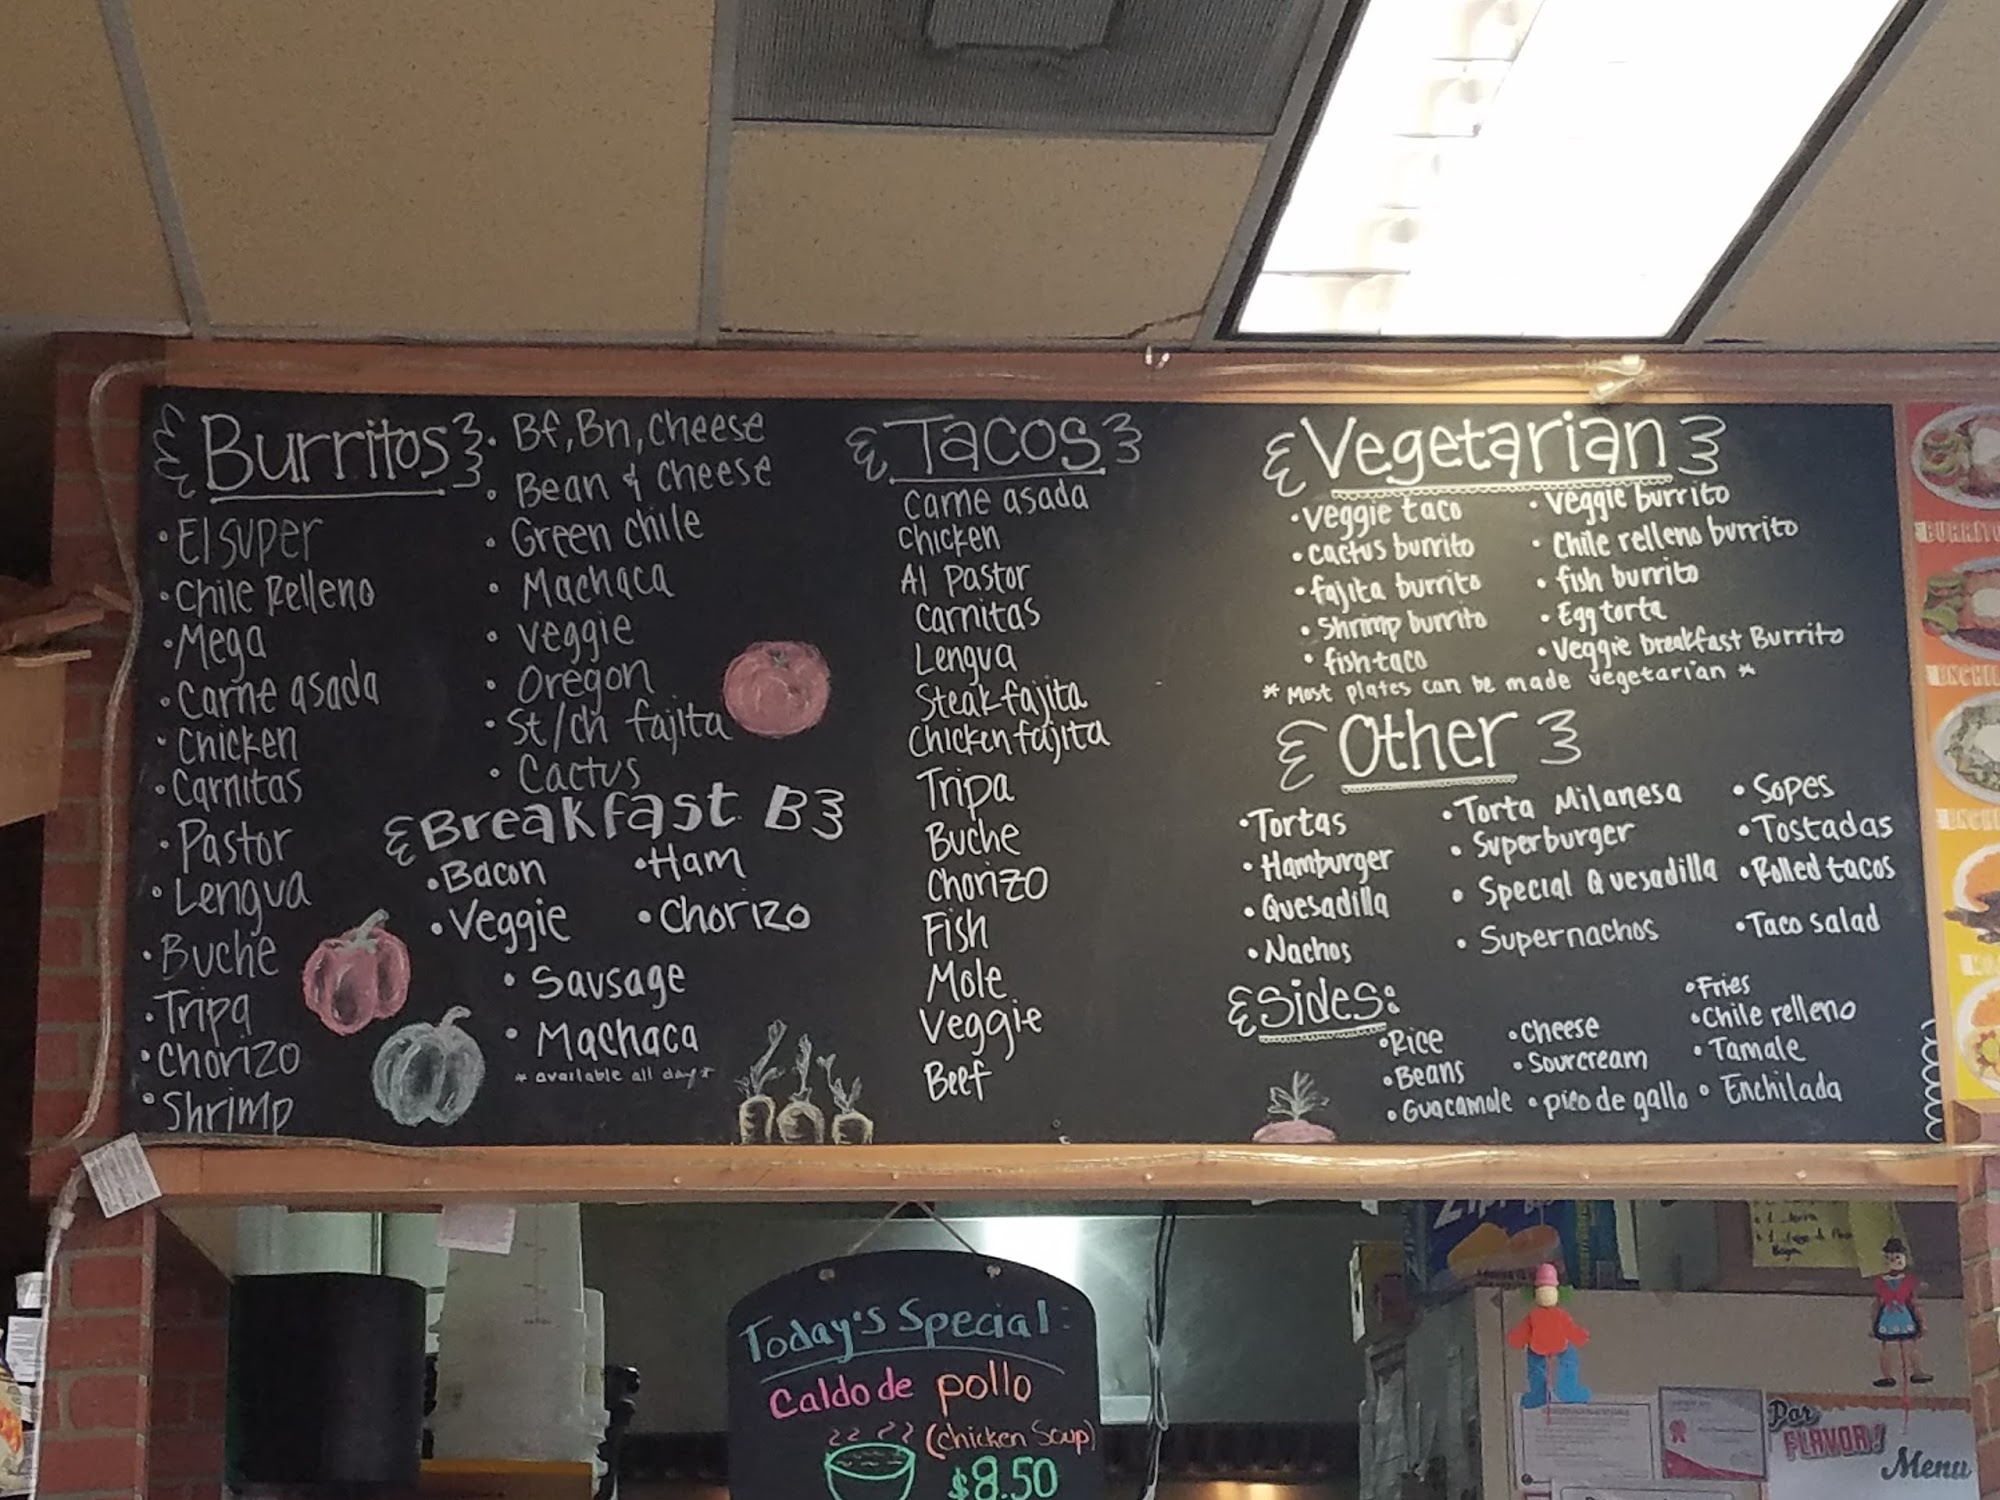 Burritos
• El Super
• Chile Relleno
• Mega
• Carne asada
• Chicken
• Carnitas
• Pastor
• Lengua
• Buche
• Tripa
• Chorizo
• Shrimp
• Bf, Bn, Cheese
• Bean & Cheese
• Green chile
• Machaca
• Veggie
• Oregon
• St/ch fajita
• Cactus
Breakfast B
• Bacon
• Ham
• Veggie
• Chorizo
• Sausage
• Machaca
* available all day *
Tacos
Carne asada
Chicken
Al Pastor
Carnitas
Lengua
Steak fajita
Chicken fajita
Tripa
Buche
Chorizo
Fish
Mole
Veggie
Beef
Vegetarian
• Veggie taco
• Cactus burrito
• fajita burrito
• Shrimp burrito
• fish taco
• Veggie burrito
• Chile relleno burrito
• fish burrito
• Egg torta
• Veggie breakfast Burrito
* Most plates can be made vegetarian *
Other
• Tortas
• Hamburger
• Quesadilla
• Nachos
• Torta Milanesa
• Superburger
• Special Quesadilla
• Supernachos
• Sopes
• Tostadas
• Rolled tacos
• Taco salad
Sides:
• Rice
• Beans
• Guacamole
• Cheese
• Sourcream
• pico de gallo
• Fries
• Chile relleno
• Tamale
• Enchilada
Today's Special:
Caldo de pollo
(chicken Soup)
$8.50
Por
FLAVOR!
Menu